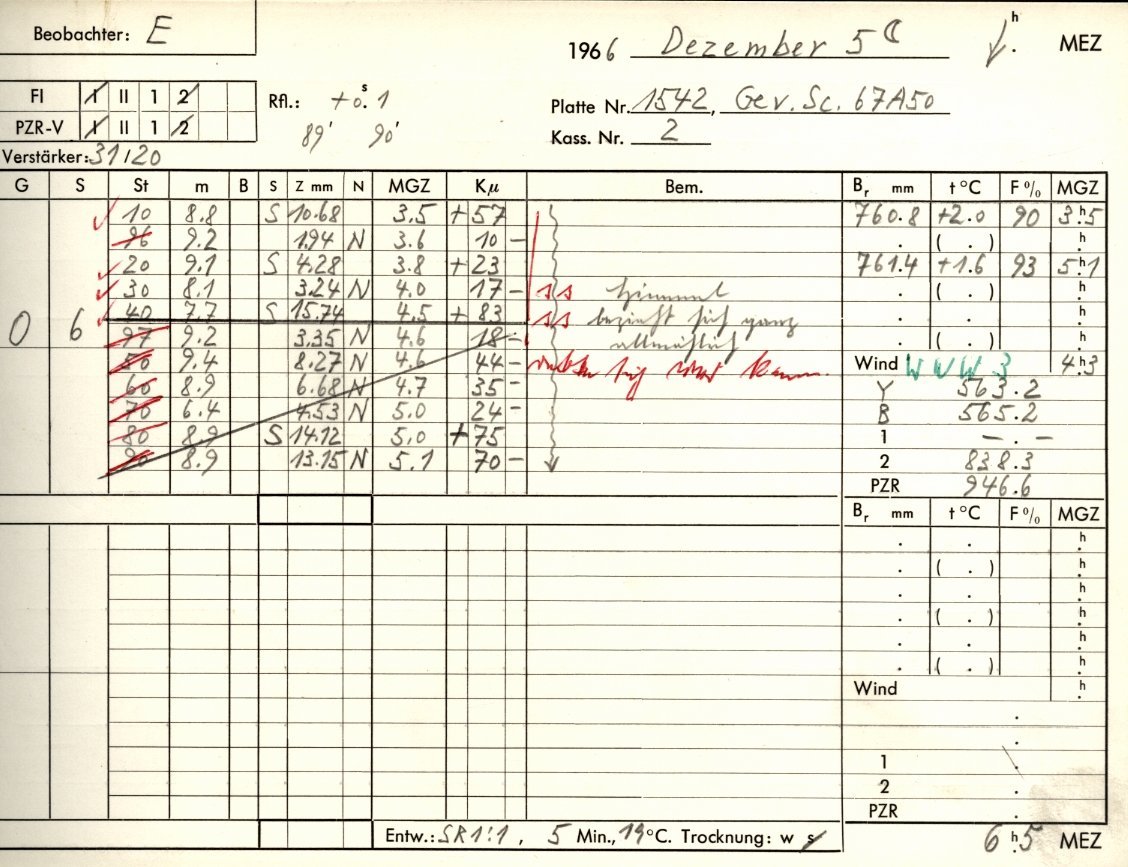 Beobachter: E
1966 Dezember 5 h. MEZ
FI I II 1 2
Rfl.: +0.ˢ1
Platte Nr. 1542, Gev. Sc. 67A50
PZR-V I II 1 2
89' 90'
Kass. Nr. 2
Verstärker: 31/20
G S St m B S Z mm N MGZ Kμ Bem. Br mm t °C F% MGZ
10 8.8 S 10.68 3.5 +57 760.8 +2.0 90 3.ʰ5
96 9.2 1.94 N 3.6 10 - . ( . ) .ʰ
20 9.1 S 4.28 3.8 +23 761.4 +1.6 93 5.ʰ1
30 8.1 3.24 N 4.0 17 - ss Himmel . ( . ) .ʰ
0 6 40 7.7 S 15.74 4.5 +83 ss bezieht sich ganz
97 9.2 3.35 N 4.6 18 - allmählich . ( . ) .ʰ
50 9.4 8.27 N 4.6 44 - Wind WNW 3 4.ʰ3
60 8.9 6.68 N 4.7 35 - Y 563.2
70 6.4 4.53 N 5.0 24 - B 565.2
80 8.9 S 14.12 5.0 +75 1 -.-
90 8.9 13.15 N 5.1 70 - 2 838.3
PZR 946.6
Br mm t °C F% MGZ
. . .ʰ
. ( . ) .ʰ
. . .ʰ
. ( . ) .ʰ
. . .ʰ
. ( . ) .ʰ
Wind .ʰ
.
.
1 .
2 .
PZR .
Entw.: SR 1:1, 5 Min., 19°C. Trocknung: w s
6.ʰ5 MEZ